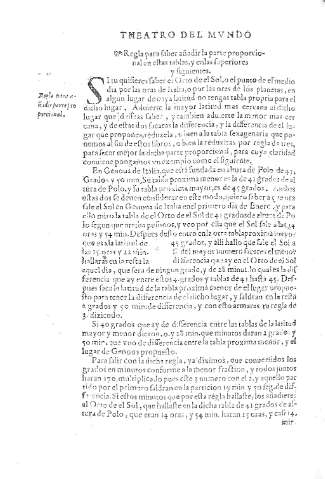 THEATRO DEL MVNDO
Regla para saber añadir la parte proporcio-
nal en estas tablas, y en las superiores
y siguientes.
SI tu quisieres saber el Orto de Sol, o el punto de el medio
dia por las oras de Italia, o por las oras de los planetas, en
algun lugar de cuya latitud no tengas tabla propria para el
dicho lugar, Advierte la mayor latitud mas cercana al dicho
lugar que desseas saber, y tambien advierte la menor mas cer
cana, y de estas dos sacaras la diferencia, y la differencia de el lu
gar que propones, reduzela, o bien a la tabla sexagenaria que po-
nemos al fin de este libro, o bien la reduziras por regla de tres,
para sacar mejor la dicha parte proporcional, para cuya claridad
conuiene pongamos vn exemplo como el siguiente.
Regla para a-
ñadir parte pro
porcional.
En Genoua de Italia, que està fundada en altura de Polo de 43.
Grados y 50. min. Se tabla proxima menor es la de 41 grados de al
tura de Polo, y su tabla proxima mayor, es de 45 grados,
estas dos se deuen considerar en este modo, quiero saber a
sale el Sol en Genoua de Italia en el primero dia de Enero, y para
ello miro la tabla de el Orto de el Sol de 41 grados de altura de Po
lo segun que arriba pusimos, y veo por ella que el Sol sale a las 14
oras y 54 min. Despues desso entro en la otra tabla proxima mayor
que es a la latitud de 45 grados, y alli hallo que sale el Sol a
las 15 oras y 22 min.
hallare en la resta la diferencia que ay en el Orto de el Sol
aquel dia, que sera de ningun grado, y de 28 minut. lo qual es la dif
ferencia que ay entre estos 4. grados y tablas de 41 hasta 45. Des
pues saca la latitud de la tabla proxima menor de el lugar propue-
sto para tener la diferencia de el dicho lugar, y saldran en la resta
2 grados y 50 min. de diferencia, y con esto armaras tu regla de
3. diziendo.
Si 4. o grados que ay de diferencia entre las tablas de la latitud
mayor y menor dieron, 0. y 28 min. que minutos daran 2 grados y
50 min. que uno de diferencia entre la tabla proxima menor, y el
lugar de Genoua propuesto.
Para salir con la dicha regla, ya diximos, que conuertidos los
grados en minutos conforme a la menor fraction, y todos juntos
haran 170. multiplicado pues este numero con el 2. y aquello par
tido por el primero saldran en la particion 19 min. y 50 seg. de dif-
ferencia. Si estos minutos que por esta regla hallaste, los añadieres
al Orto de el Sol, que hallaste en la dicha tabla de 41 grados de al-
tura de Polo, que eran 14 oras, y 54 min. haran 15 oras, y casi 14.
min-